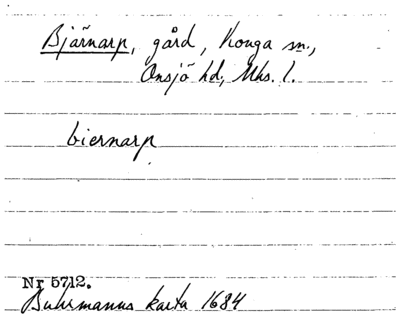 Bjärnarp, gård, Konga sn.,
Onsjö hd., Mhs. l.
biernarp
Nr 5712.
Buhrmanns karta 1684